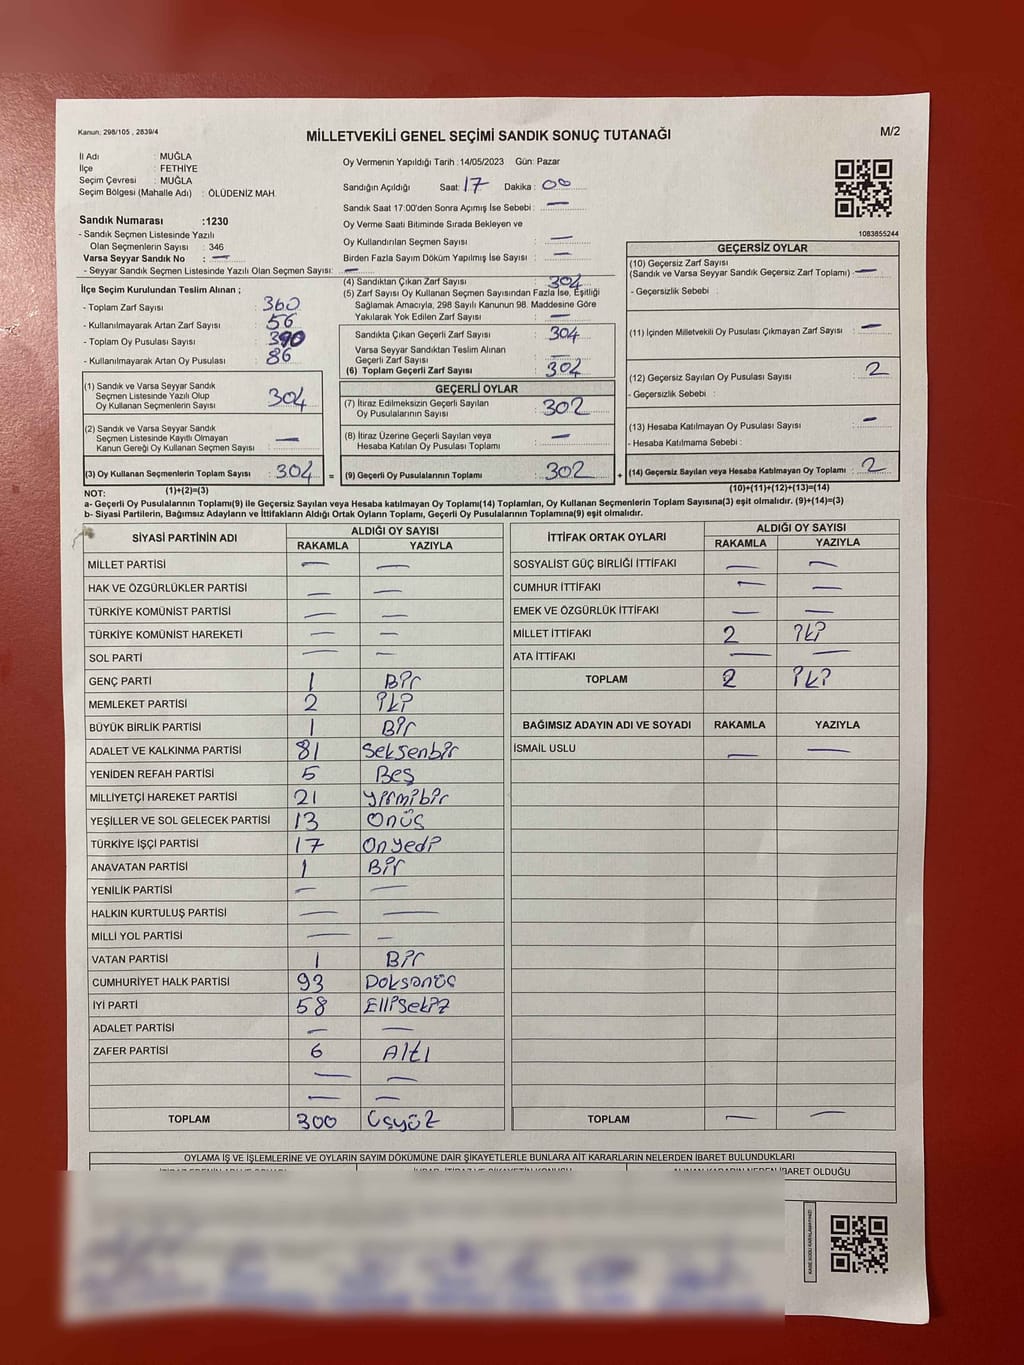 Kanun; 298/105 , 2839/4
MİLLETVEKİLİ GENEL SEÇİMİ SANDIK SONUÇ TUTANAĞI
M/2
İl Adı : MUĞLA
İlçe : FETHİYE
Seçim Çevresi : MUĞLA
Seçim Bölgesi (Mahalle Adı) : ÖLÜDENİZ MAH.
Sandık Numarası :1230
- Sandık Seçmen Listesinde Yazılı
Olan Seçmenlerin Sayısı : 346
Varsa Seyyar Sandık No : —
- Seyyar Sandık Seçmen Listesinde Yazılı Olan Seçmen Sayısı: —
Oy Vermenin Yapıldığı Tarih :14/05/2023 Gün: Pazar
Sandığın Açıldığı Saat: 17 Dakika : 00
Sandık Saat 17:00'den Sonra Açımış İse Sebebi : —
Oy Verme Saati Bitiminde Sırada Bekleyen ve
Oy Kullandırılan Seçmen Sayısı : —
Birden Fazla Sayım Döküm Yapılmış İse Sayısı : —
1083855244
İlçe Seçim Kurulundan Teslim Alınan ;
- Toplam Zarf Sayısı : 360
- Kullanılmayarak Artan Zarf Sayısı : 56
- Toplam Oy Pusulası Sayısı : 390
- Kullanılmayarak Artan Oy Pusulası : 86
(1) Sandık ve Varsa Seyyar Sandık
Seçmen Listesinde Yazılı Olup
Oy Kullanan Seçmenlerin Sayısı : 304
(2) Sandık ve Varsa Seyyar Sandık
Seçmen Listesinde Kayıtlı Olmayan
Kanun Gereği Oy Kullanan Seçmen Sayısı : —
(3) Oy Kullanan Seçmenlerin Toplam Sayısı : 304 =
(1)+(2)=(3)
(4) Sandıktan Çıkan Zarf Sayısı : 304
(5) Zarf Sayısı Oy Kullanan Seçmen Sayısından Fazla İse, Eşitliği
Sağlamak Amacıyla, 298 Sayılı Kanunun 98. Maddesine Göre
Yakılarak Yok Edilen Zarf Sayısı : —
Sandıkta Çıkan Geçerli Zarf Sayısı : 304
Varsa Seyyar Sandıktan Teslim Alınan
Geçerli Zarf Sayısı : —
(6) Toplam Geçerli Zarf Sayısı : 304
GEÇERLİ OYLAR
(7) İtiraz Edilmeksizin Geçerli Sayılan
Oy Pusulalarının Sayısı : 302
(8) İtiraz Üzerine Geçerli Sayılan veya
Hesaba Katılan Oy Pusulası Toplamı : —
(9) Geçerli Oy Pusulalarının Toplamı : 302 +
GEÇERSİZ OYLAR
(10) Geçersiz Zarf Sayısı
(Sandık ve Varsa Seyyar Sandık Geçersiz Zarf Toplamı) : —
- Geçersizlik Sebebi :
(11) İçinden Milletvekili Oy Pusulası Çıkmayan Zarf Sayısı : —
(12) Geçersiz Sayılan Oy Pusulası Sayısı : 2
- Geçersizlik Sebebi :
(13) Hesaba Katılmayan Oy Pusulası Sayısı : —
- Hesaba Katılmama Sebebi :
(14) Geçersiz Sayılan veya Hesaba Katılmayan Oy Toplamı : 2
(10)+(11)+(12)+(13)=(14)
NOT:
a- Geçerli Oy Pusulalarının Toplamı(9) ile Geçersiz Sayılan veya Hesaba katılmayan Oy Toplamı(14) Toplamları, Oy Kullanan Seçmenlerin Toplam Sayısına(3) eşit olmalıdır. (9)+(14)=(3)
b- Siyasi Partilerin, Bağımsız Adayların ve İttifakların Aldığı Ortak Oyların Toplamı, Geçerli Oy Pusulalarının Toplamına(9) eşit olmalıdır.
SİYASİ PARTİNİN ADI ALDIĞI OY SAYISI
RAKAMLA YAZIYLA
MİLLET PARTİSİ — —
HAK VE ÖZGÜRLÜKLER PARTİSİ — —
TÜRKİYE KOMÜNİST PARTİSİ — —
TÜRKİYE KOMÜNİST HAREKETİ — —
SOL PARTİ — —
GENÇ PARTİ 1 Bir
MEMLEKET PARTİSİ 2 İki
BÜYÜK BİRLİK PARTİSİ 1 Bir
ADALET VE KALKINMA PARTİSİ 81 Seksenbir
YENİDEN REFAH PARTİSİ 5 Beş
MİLLİYETÇİ HAREKET PARTİSİ 21 Yirmibir
YEŞİLLER VE SOL GELECEK PARTİSİ 13 Onüç
TÜRKİYE İŞÇİ PARTİSİ 17 Onyedi
ANAVATAN PARTİSİ 1 Bir
YENİLİK PARTİSİ — —
HALKIN KURTULUŞ PARTİSİ — —
MİLLİ YOL PARTİSİ — —
VATAN PARTİSİ 1 Bir
CUMHURİYET HALK PARTİSİ 93 Doksanüç
İYİ PARTİ 58 Ellisekiz
ADALET PARTİSİ — —
ZAFER PARTİSİ 6 Altı
— —
— —
TOPLAM 300 Üçyüz
İTTİFAK ORTAK OYLARI ALDIĞI OY SAYISI
RAKAMLA YAZIYLA
SOSYALİST GÜÇ BİRLİĞİ İTTİFAKI — —
CUMHUR İTTİFAKI — —
EMEK VE ÖZGÜRLÜK İTTİFAKI — —
MİLLET İTTİFAKI 2 İki
ATA İTTİFAKI — —
TOPLAM 2 İki
BAĞIMSIZ ADAYIN ADI VE SOYADI RAKAMLA YAZIYLA
İSMAİL USLU — —
TOPLAM — —
OYLAMA İŞ VE İŞLEMLERİNE VE OYLARIN SAYIM DÖKÜMÜNE DAİR ŞİKAYETLERLE BUNLARA AİT KARARLARIN NELERDEN İBARET BULUNDUKLARI
ALINAN KARARIN NEDEN İBARET OLDUĞU